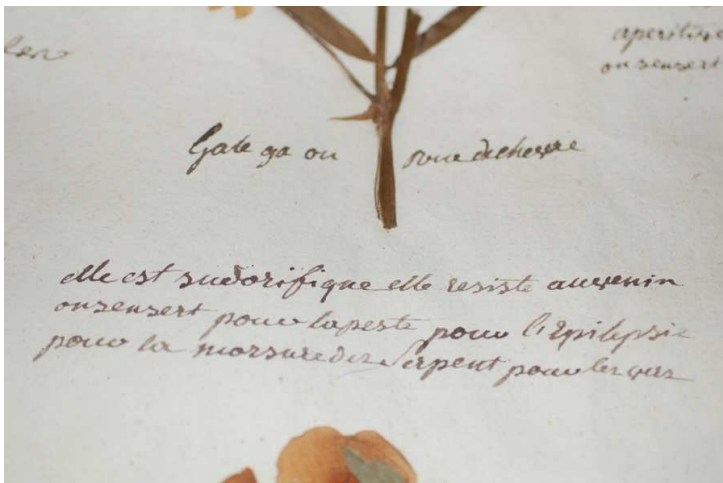 aperitive
on sensert
Galega ou rue de chevre
elle est sudorifique elle resiste au venin
on sensert pour la peste pour l'Epilepsie
pour la morsure des Serpent pour les vers